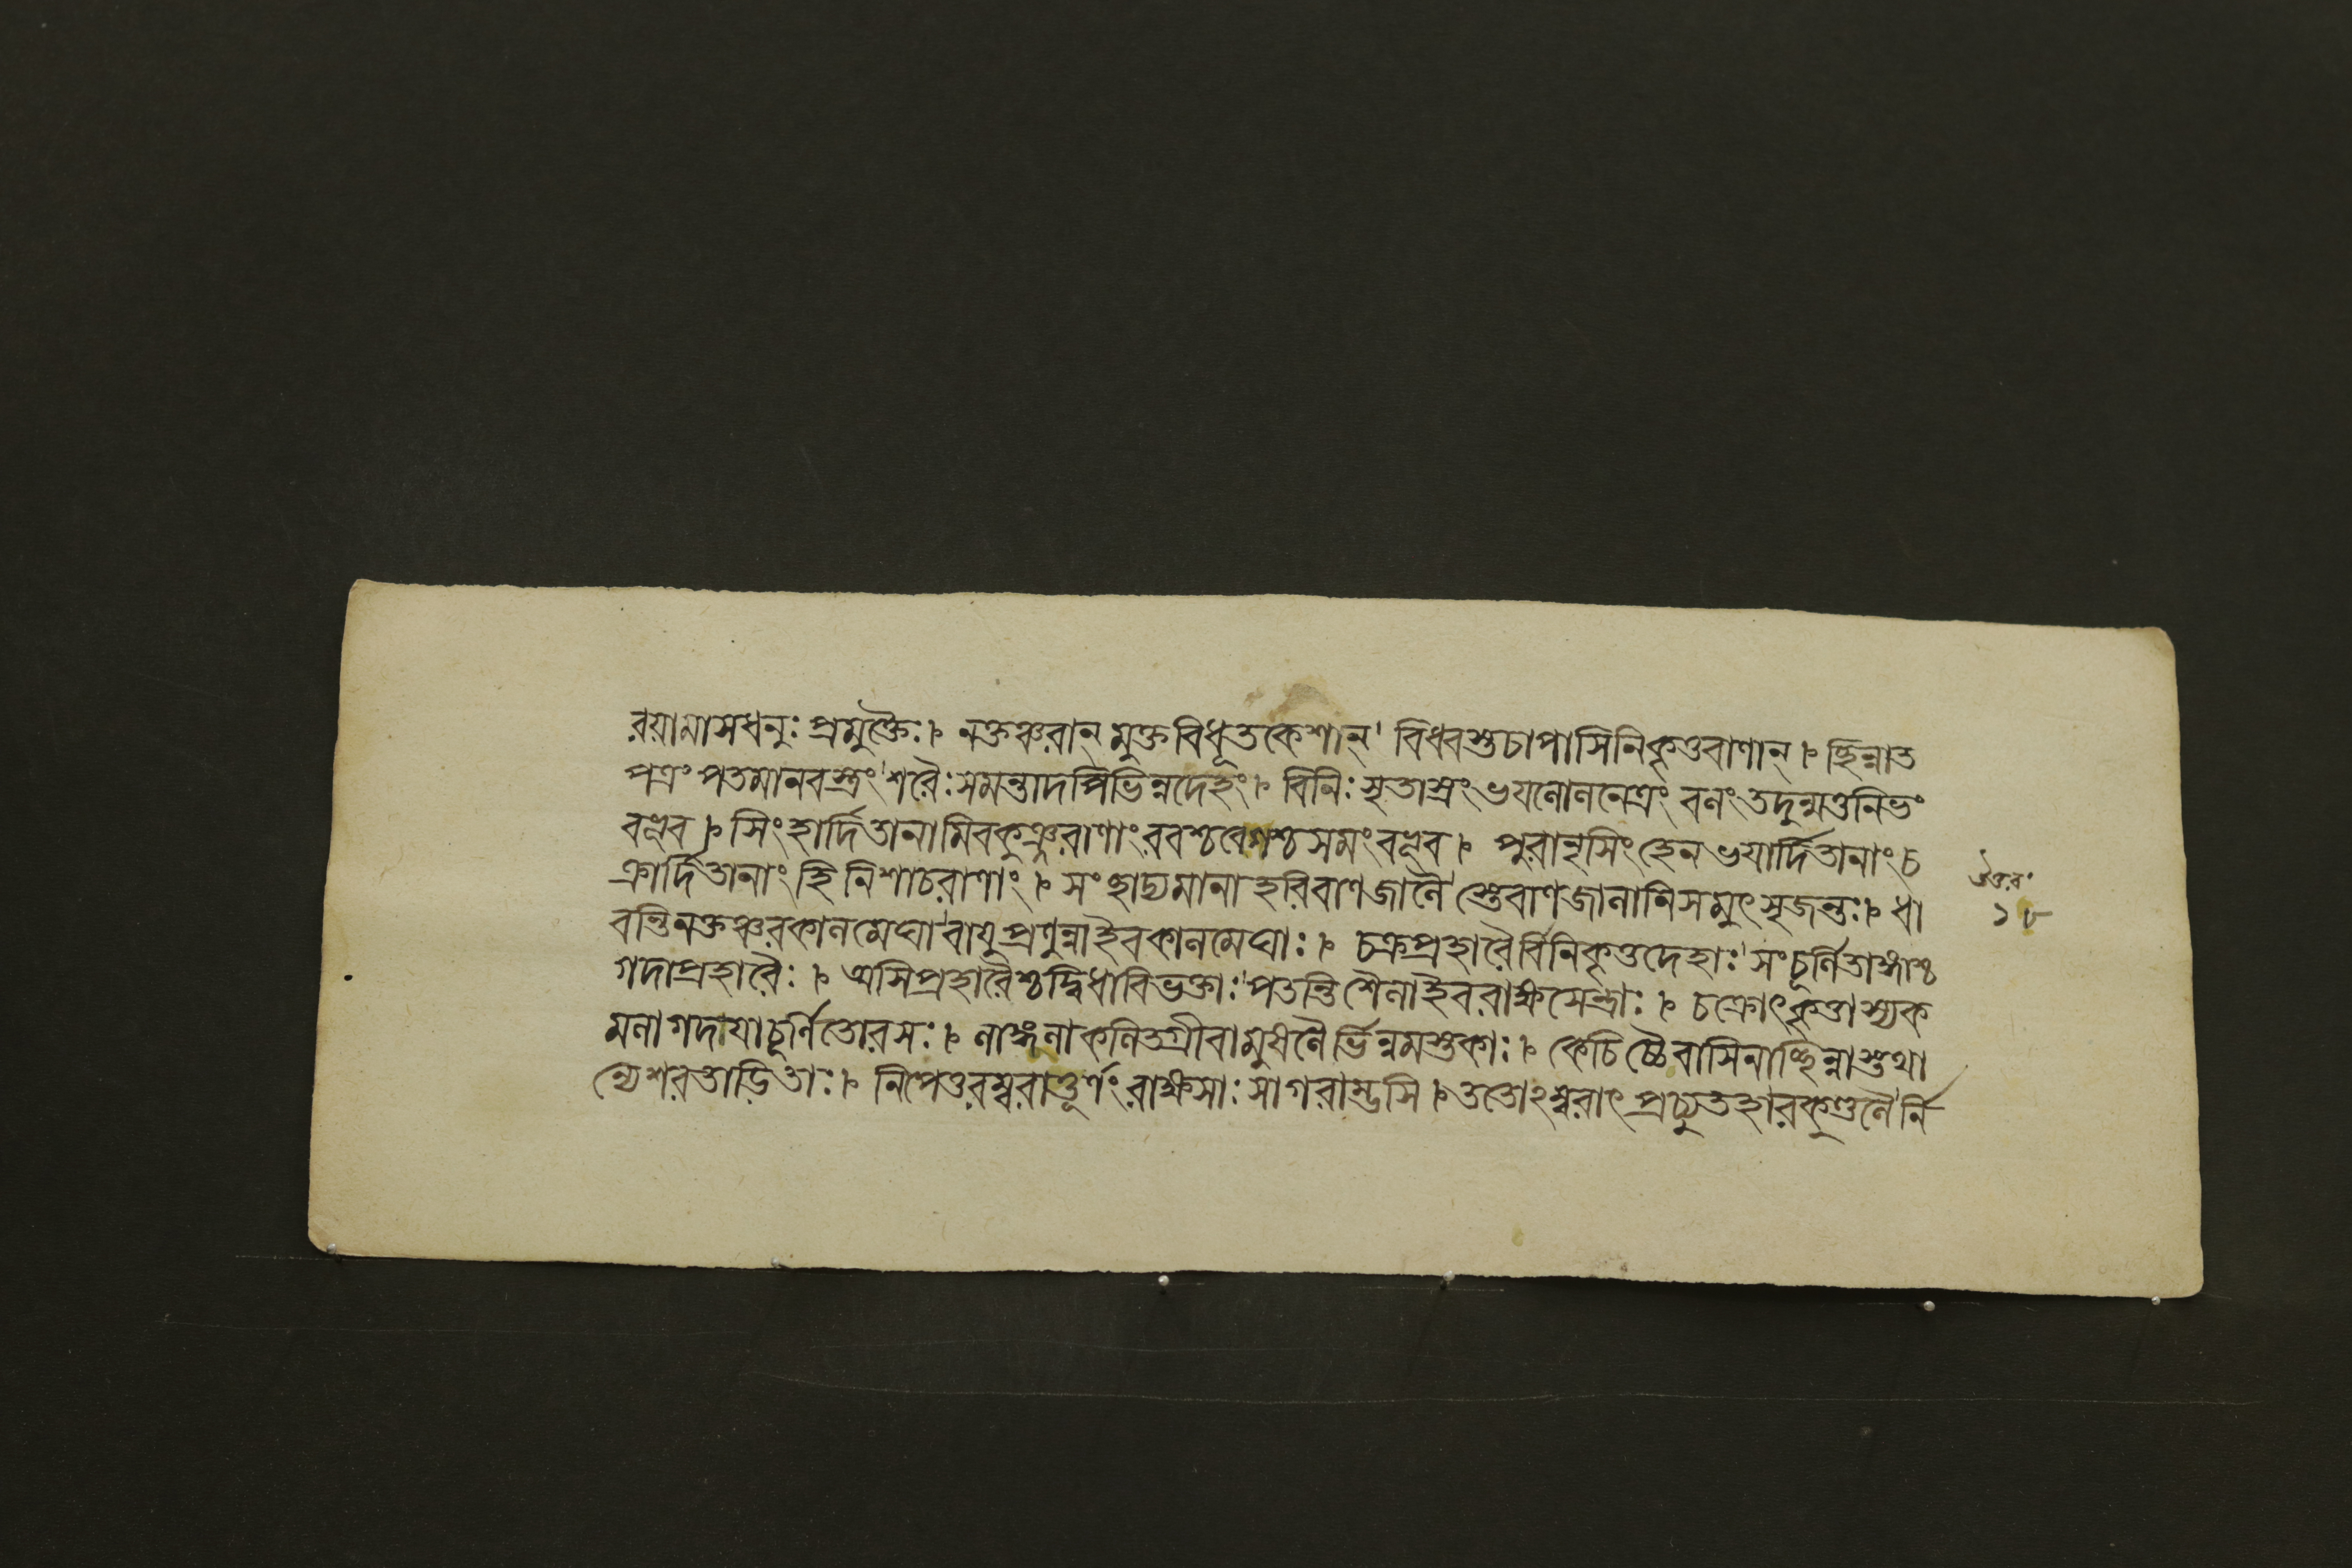 রয়ামাসধনুঃপ্রমুক্তৈঃ। নক্তঞ্চরান্ মুক্তবিধূতকেশান্' বিধ্বস্তচাপাসিনিকৃত্তবাণান্। ছিন্নাত
পত্রং পতমানবস্ত্রং'শরৈঃসমন্তাদপিভিন্নদেহং। বিনিঃসৃতাস্ত্রং ভয়লোলনেত্রং বলং তদুন্মত্তনিভং
বভূব। সিংহার্দিতানামিবকুঞ্জরাণাং রবশ্চবেগশ্চসমংবভূব। পুরানৃসিংহেনভয়ার্দিতানাং চ
ক্রার্দিতানাং হি নিশাচরাণাং। সংছাদ্যমানা হরিবাণজালৈ'স্তেবাণজালানিসমুৎসৃজন্তঃ। ধা
বন্তিনক্তঞ্চরকালমেঘা'বায়ুপ্রণুন্নাইবকালমেঘাঃ। চক্রপ্রহারৈর্বিনিকৃত্তদেহাঃ'সংচূর্ণিতাঙ্গাশ্চ
গদাপ্রহারৈঃ। অসিপ্রহারৈশ্চদ্বিধাবিভক্তাঃ'পতন্তি শৈলাইবরাক্ষসেন্দ্রাঃ। চক্রোৎকৃত্তাস্যক
মলাগদায়াচূর্ণিতোরসঃ। লাঙ্গলাকলিতগ্রীবামুষলৈর্ভিন্নমস্তকাঃ। কেচিচ্চৈবাসিনাচ্ছিন্নাস্তথা
ন্যেশরতাড়িতাঃ। নিপেতুরম্বরাত্তূর্ণং রাক্ষসাঃ সাগরাম্ভসি। ততোঽম্বরাৎ প্রচ্যুতহারকুণ্ডলৈ'র্নি
উত্তর°
১৮